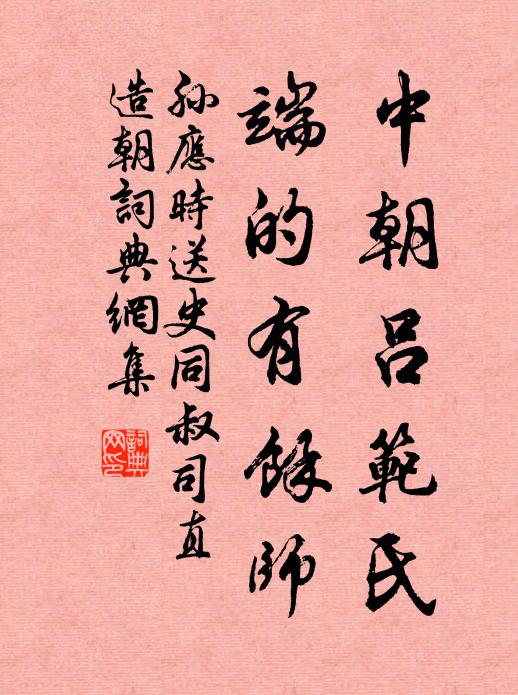 中朝呂範氏
端的有餘師
孫應時送史同叔司直
造朝詞典網集
詞典
网印